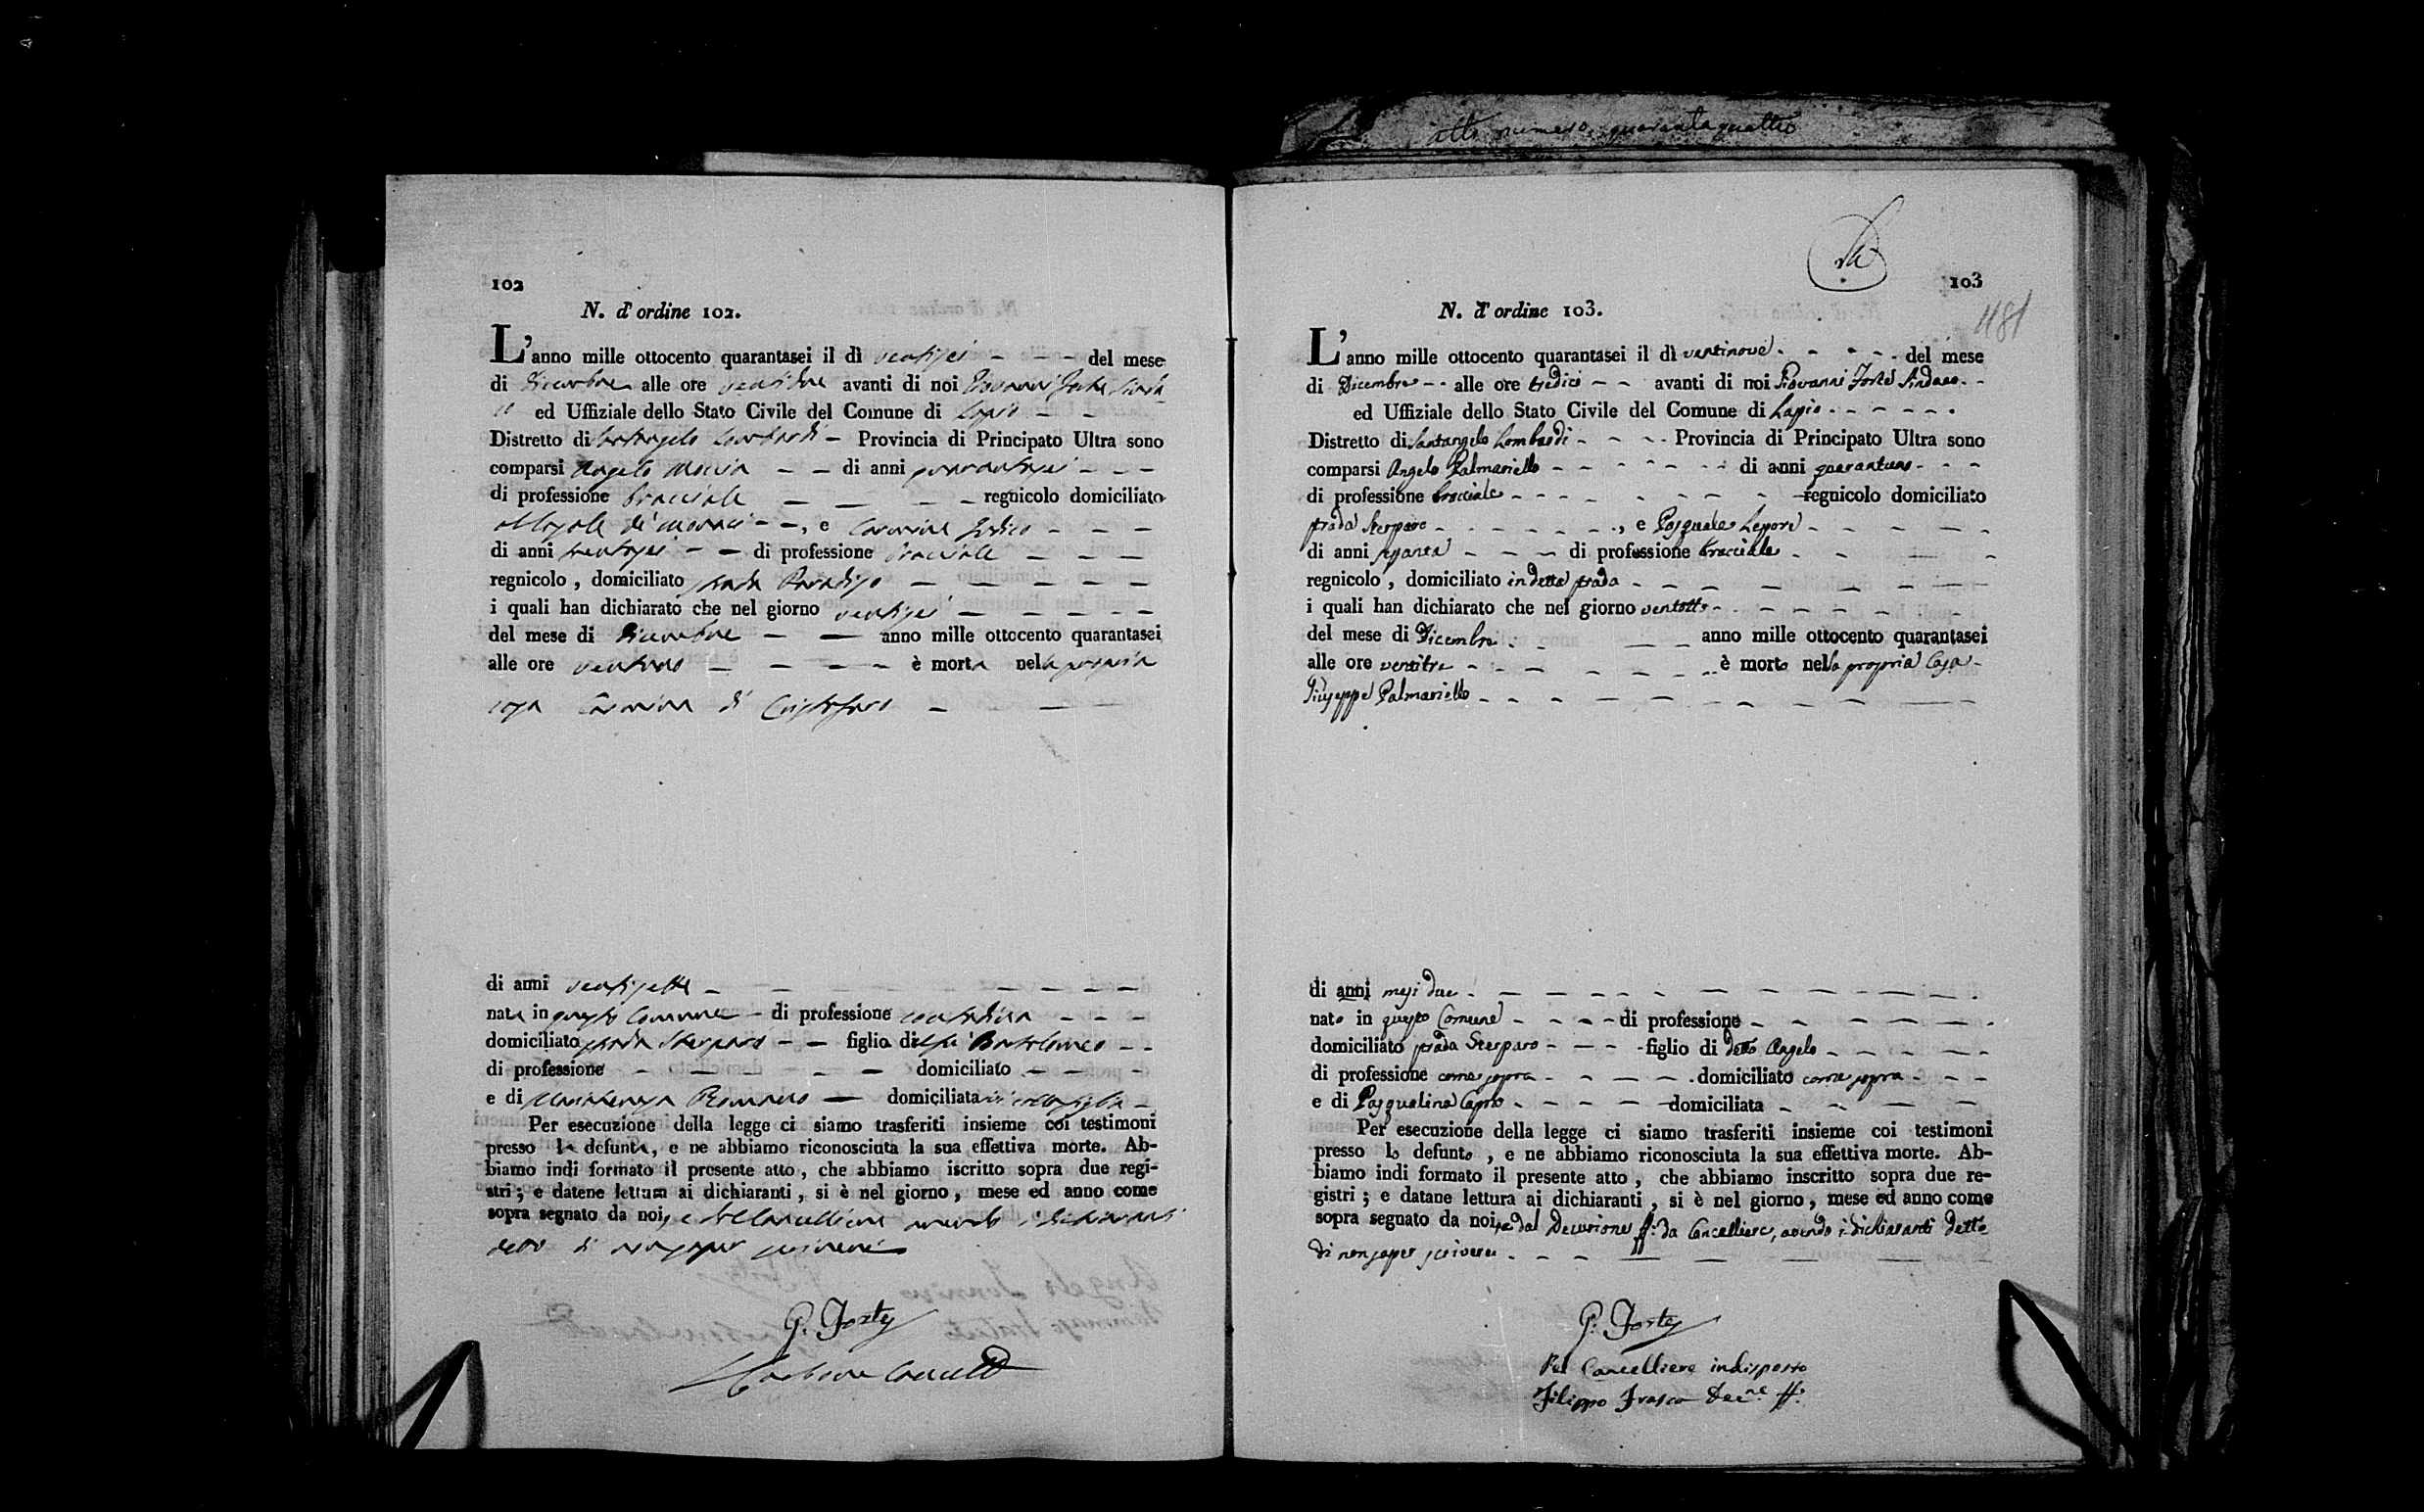 atto numero quarantaquattro
102
N. d'ordine 102.
L'anno mille ottocento quarantasei il dì ventisei - - - del mese
di Dicembre alle ore ventidue avanti di noi Giovanni Forte Sinda-
co ed Uffiziale dello Stato Civile del Comune di Lapio - -
Distretto di Santangelo Lombardi - Provincia di Principato Ultra sono
comparsi Angelo Moccia - - di anni quarantasei - - -
di professione bracciale - - - - regnicolo domiciliato
- -, e Carmine - - -
di anni trentasei - - di professione bracciale - - -
regnicolo, domiciliato strada Paradiso - - - - -
i quali han dichiarato che nel giorno ventisei - - - - -
del mese di Dicembre - - anno mille ottocento quarantasei
alle ore - - - - è morta nella propria
casa Carmina di Cristofaro - - -
di anni ventisette - - - - - - - -
nata in questo Comune - di professione contadina - - -
domiciliato strada Sterparo - - figlia di Bartolomeo - -
di professione - - - - - domiciliato - - -
e di Romano - domiciliata
Per esecuzione della legge ci siamo trasferiti insieme coi testimoni
presso la defunta, e ne abbiamo riconosciuta la sua effettiva morte. Ab-
biamo indi formato il presente atto, che abbiamo iscritto sopra due regi-
stri; e datene lettura ai dichiaranti, si è nel giorno, mese ed anno come
sopra segnato da noi, e dal Cancelliere avendo i dichiaranti
detto di non saper scrivere
G. Forte
103
481
N. d'ordine 103.
L'anno mille ottocento quarantasei il dì ventinove - - - - del mese
di Dicembre - - alle ore tredici - - avanti di noi Giovanni Forte Sindaco - -
ed Uffiziale dello Stato Civile del Comune di Lapio - - - - - -
Distretto di Santangelo Lombardi - - - - Provincia di Principato Ultra sono
comparsi Angelo Palmariello - - - - - - - di anni quarantuno - - -
di professione bracciale - - - - - - - - - regnicolo domiciliato
strada Sterparo - - - - - - - -, e Pasquale Lepore - - - - - -
di anni sessanta - - - - di professione bracciale - - - -
regnicolo, domiciliato in detta strada - - - - - - - - -
i quali han dichiarato che nel giorno ventotto - - - - - - - -
del mese di Dicembre - - - - anno mille ottocento quarantasei
alle ore ventitre - - - - - - - - è morto nella propria Casa -
Giuseppe Palmariello - - - - - - - - - - -
di anni mesi due - - - - - - - - - - - -
nato in questo Comune - - - - di professione - - - - - -
domiciliato strada Sterparo - - - - figlio di detto Angelo - - - - -
di professione come sopra - - - - - domiciliato come sopra - - -
e di Pasqualina Capro - - - - - domiciliata - - - -
Per esecuzione della legge ci siamo trasferiti insieme coi testimoni
presso lo defunto, e ne abbiamo riconosciuta la sua effettiva morte. Ab-
biamo indi formato il presente atto, che abbiamo inscritto sopra due re-
gistri; e datane lettura ai dichiaranti, si è nel giorno, mese ed anno come
sopra segnato da noi, e dal Decurione ff: da Cancelliere, avendo i dichiaranti detto
di non saper scrivere - - - - - - - -
G. Forte
Pel Cancelliere indisposto
Filippo Frasca Dec.ne ff: